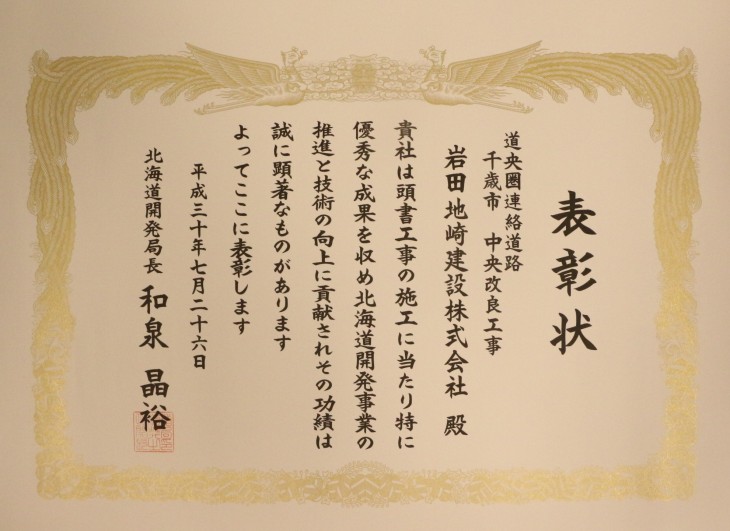 表彰状
道央圏連絡道路
千歳市 中央改良工事
岩田地崎建設株式会社 殿
貴社は頭書工事の施工に当たり特に
優秀な成果を収め北海道開発事業の
推進と技術の向上に貢献されその功績は
誠に顕著なものがあります
よってここに表彰します
平成三十年七月二十六日
北海道開発局長 和泉 晶裕